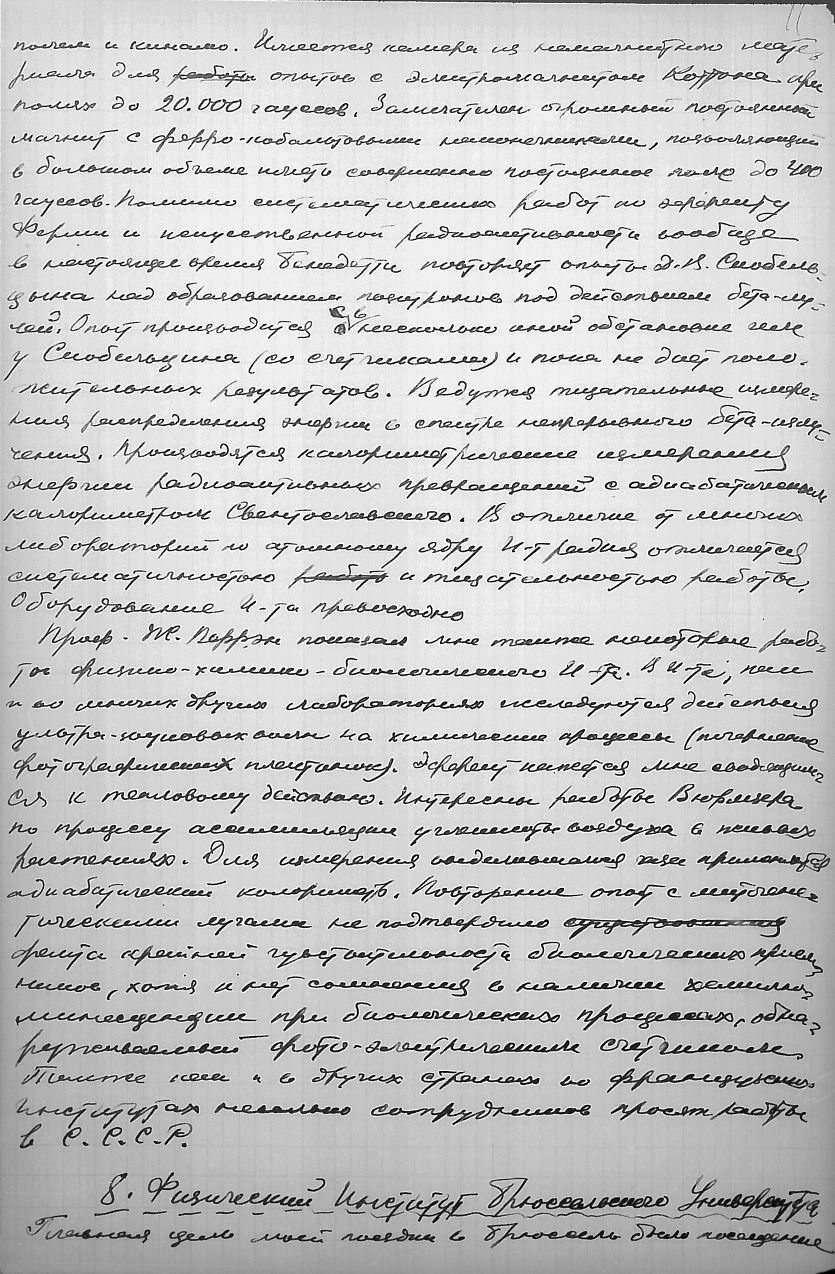 11
полем и кинамо. Имеется камера из немагнитного мате-
риала для работы опытов с электромагнитом Коттона при
полях до 20.000 гауссов. Замечателен огромный постоянный
магнит с ферро-кобальтовыми наконечниками, позволяющий
в большом объеме иметь совершенно постоянное поле до 400
гауссов. Помимо систематических работ по эффекту
Ферми и искусственной радиоактивности вообще
в настоящее время Бенедетти повторяет опыты Д.В. Скобель-
цына над образованием позитронов под действием бета-лу-
чей. Опыт производится в несколько иной обстановке чем
у Скобельцына (со счетчиками) и пока не дает поло-
жительных результатов. Ведутся тщательные измере-
ния распределения энергии в спектре непрерывного бета-излу-
чения. Производятся калориметрические измерения
энергии радиоактивных превращений с адиабатическим
калориметром Свентославского. В отличие от многих
лабораторий по атомному ядру И-т радия отличается
систематичностью работ и тщательностью работы.
Оборудование И-та превосходно
Проф. Ж. Перрэн показал мне также некоторые рабо-
ты физико-химико-биологического И-та. В И-те, как
и во многих других лабораториях исследуются действия
ультра-звуковых волн на химические процессы (почернение
фотографических пластинок). Эффект кажется мне сводящим-
ся к тепловому действию. Интересны работы Вюрмзера
по процессу ассимиляции углекислоты воздуха в живых
растениях. Для измерения выделившегося газа применяется
адиабатический калориметр. Повторение опыт с митогене-
тическими лучами не подтвердило существования
факта крайней чувствительности биологических прием-
ников, хотя и нет сомнения в наличии хемилю-
минесценции при биологических процессах, обна-
руживаемый фото-электрическим счетчиком.
Также как и в других странах во французских
институтах несколько сотрудников просят работы
в С.С.С.Р.
8. Физический Институт Брюссельского Университета
Главная цель моей поездки в Брюссель было посещение